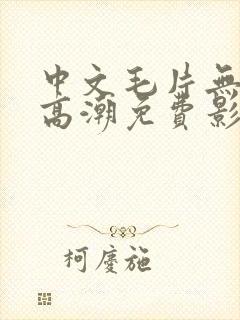 中文毛片無
高潮免費影
柯慶施